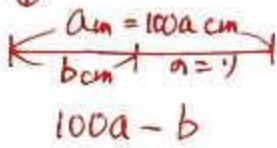 am = 100a cm
bcm
100a - b